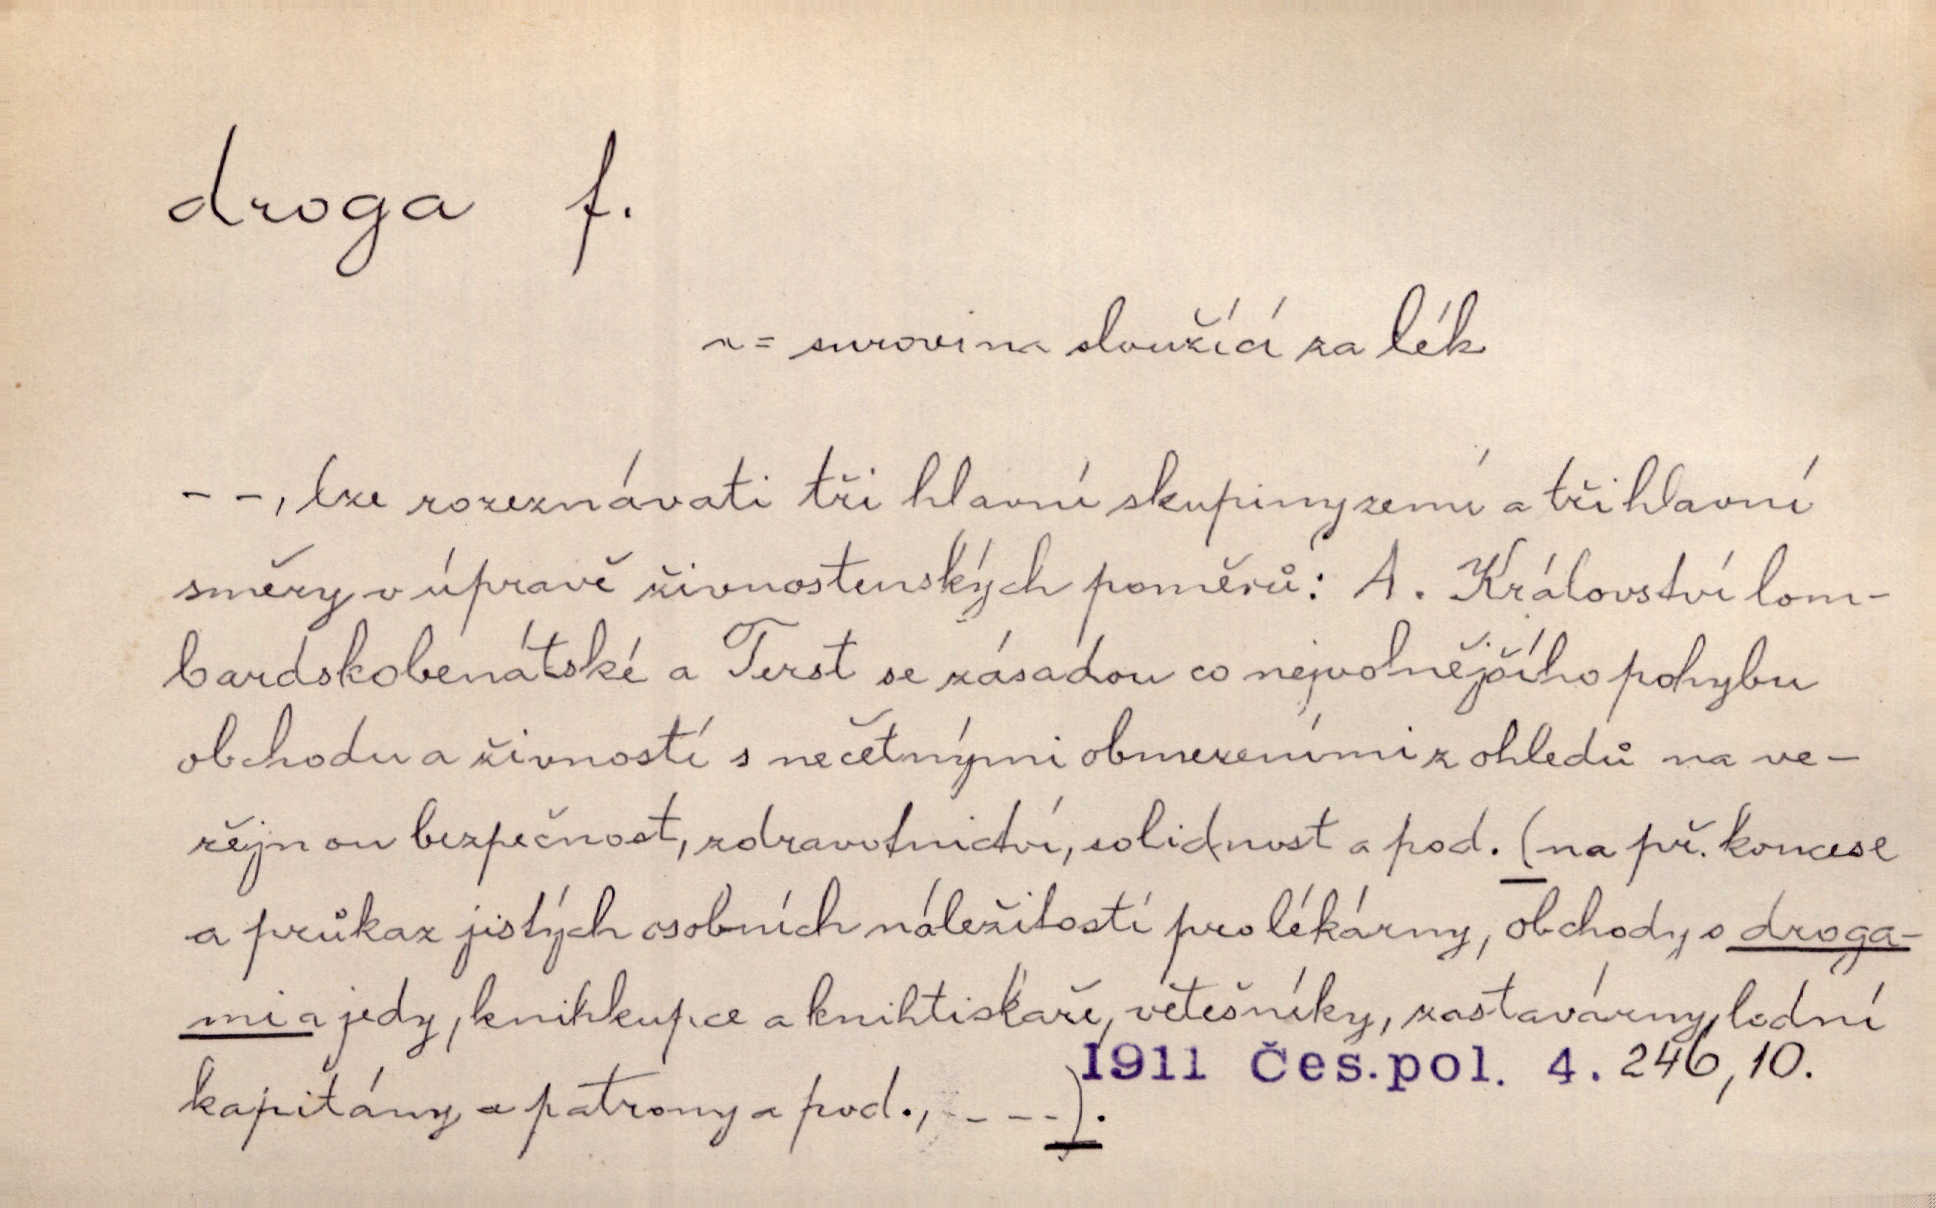 droga f.
= surovina sloužící za lék
– –, lze rozeznávati tři hlavní skupiny zemí a tři hlavní
směry v úpravě živnostenských poměrů: A. Království lom-
bardskobenátské a Terst se zásadou co nejvolnějšího pohybu
obchodu a živností s nečetnými obmezeními z ohledů na ve-
řejnou bezpečnost, zdravotnictví, solidnost a pod. (na př. koncese
a průkaz jistých osobních náležitostí pro lékárny, obchody s droga-
mi a jedy, knihkupce a knihtiskaře, vetešníky, zastavárny, lodní
kapitány a patrony a pod., – – –).
1911 Čes.pol. 4. 246, 10.